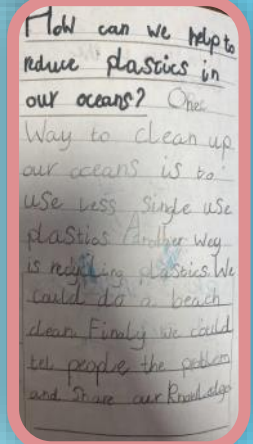 How can we help to
reduce plastics in
our oceans? One
Way to clean up
our oceans is to
use less single use
plastics Another way
is recycling plastics. We
could do a beach
clean. Finaly we could
tell people the problem
and share our knowledge